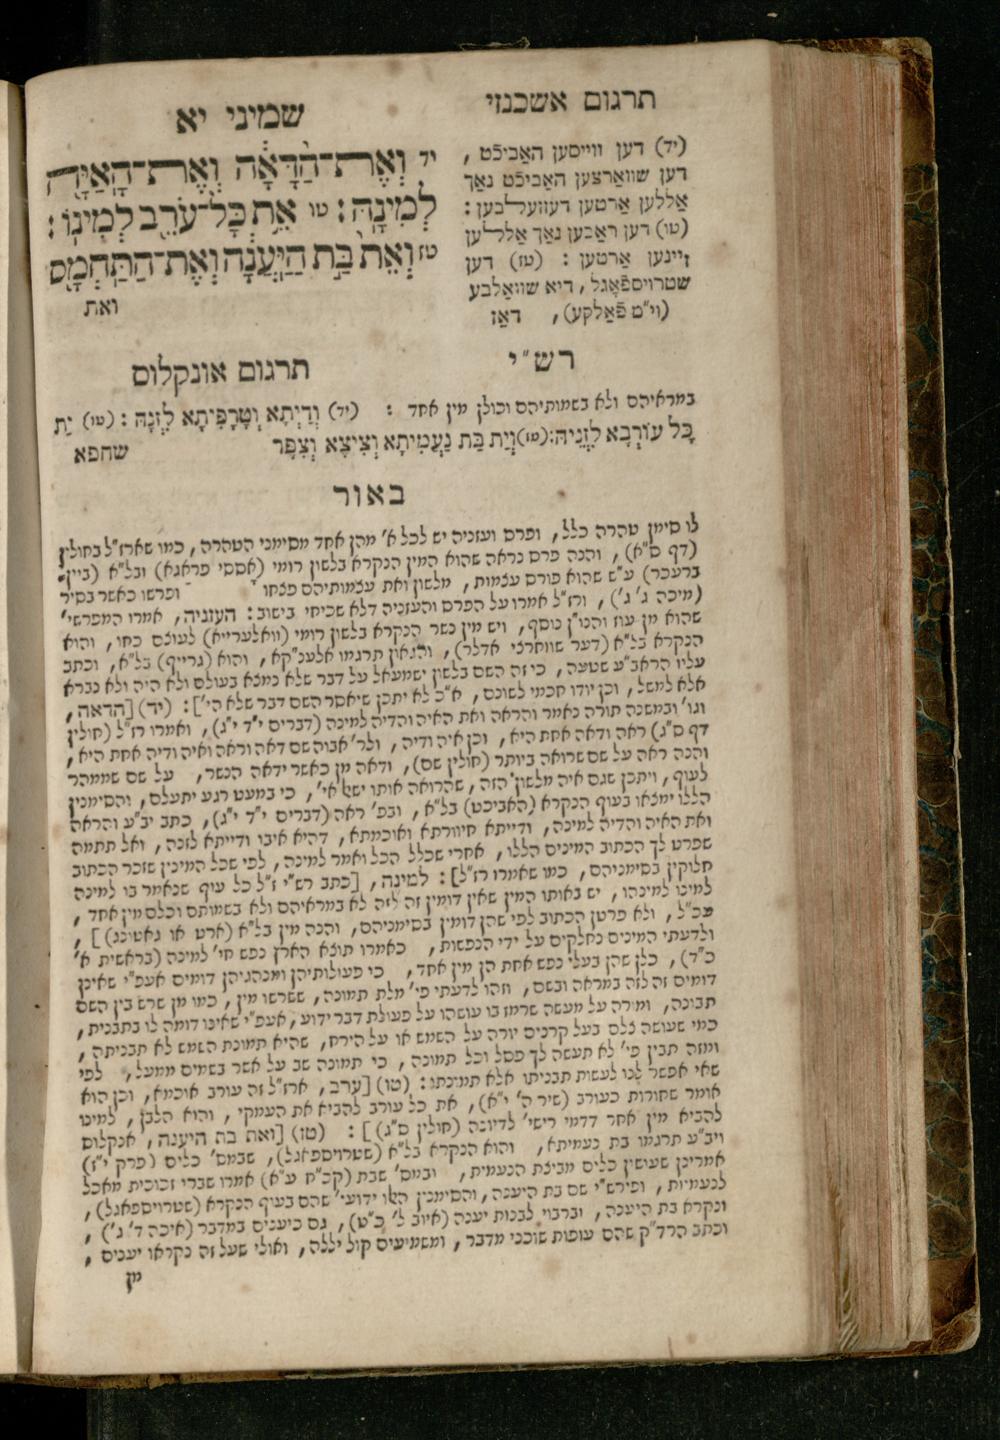 תרגום אשכנזי
שמיני יא
(יד) דען ווייסען האַביכֿט,
דען שוואַרצען האַביכֿט נאַך
אַללען אַרטען דעזזעלבען:
(טו) דען ראַבען נאַך אַללען
זיינען אַרטען: (טז) דען
שטרויספֿאָגל, דיא שוואַלבע
(וי"מ פֿאַלקע), דאַז
יד וְאֶת־הַ֨דָּאָ֔ה וְאֶת־הָאַיָּ֖ה
לְמִינָֽהּ׃ טו אֵ֥ת כָּל־עֹרֵ֖ב לְמִינֽוֹ׃
טז וְאֵת֙ בַּ֣ת הַֽיַּעֲנָ֔ה וְאֶת־הַתַּחְמָ֖ס
ואת
רש"י
תרגום אונקלוס
במראיהם ולא בשמותיהם וכולן מין אחד : (יד) וְדַיְתָא וְטָרָפִיתָא לִזְנָהּ: (טו) יַת
כָּל עוֹרְבָא לִזְנֵיהּ: (טז) וְיַת בַּת נַעֲמִיתָא וְצִיצָא וְצִפַּר
שחפא
באור
לו סימן טהרה כלל, ופרס ועזניה יש לכל א' מהן אחד מסימני הטהרה, כמו שארז"ל בחולין
(דף ס"א), והנה פרס נראה שהוא המין הנקרא בלשון רומי (אססי פראגא) ובל"א (ביין־
ברעכר) ע"ש שהוא פורס עצמות, מלשון ואת עצמותיהם פצחו ופרשו כאשר בסיר
(מיכה ג' ג'), ורז"ל אמרו על הפרס והעזניה דלא שכיחי בישוב: העזניה, אמרו המפרשי'
שהוא מן עוז והנו"ן נוסף, ויש מין נשר הנקרא בלשון רומי (וואלערייא) לעוצם כחו, והוא
הנקרא בל"א (דער שווארצי אדלר), והגאון תרגמו אלענ"קא, והוא (גרייף) בל"א, וכתב
עליו הראב"ע שטעה, כי זה השם בלשון ישמעאל על דבר שלא נמצא בעולם ולא היה ולא נברא
אלא למשל, וכן יודו חכמי לשונם, א"כ לא יתכן שיאסר השם דבר שלא הי']: (יד) [הדאה,
וגו' ובמשנה תורה נאמר והראה ואת האיה והדיה למינה (דברים י"ד י"ג), ואמרו רז"ל (חולין
דף ס"ג) ראה ודאה אחת היא, וכן איה ודיה, ולר' אבוה שם דאה וראה ואיה ודיה אחת היא,
והנה ראה על שם שרואה ביותר (חולין שם), ודאה מן כאשר ידאה הנשר, על שם שממהר
לעוף, ויתכן שגם איה מלשון הזה, שהרואה אותו ישאל אי', כי במעט רגע יתעלם, והסימנין
הללו ימצאו בעוף הנקרא (האביכט) בל"א, ובפ' ראה (דברים י"ד י"ג), כתב יב"ע והראה
ואת האיה והדיה למינה, ודייתא חיוורתא ואוכמתא, דהיא איבו ודייתא לזנה, ואל תתמה
שפרט לך הכתוב המינים הללו, אחרי שכלל הכל ואמר למינה, לפי שכל המינין שזכר הכתוב
חלוקין בסימניהם, כמו שאמרו רז"ל]: למינה, [כתב רש"י ז"ל כל עוף שנאמר בו למינה
למינו למינהו, יש באותו המין שאין דומין זה לזה לא במראיהם ולא בשמותם וכלם מין אחד,
עכ"ל, ולא פרטן הכתוב לפי שהן דומין בסימניהם, והנה מין בל"א (ארט או גאטונג)],
ולדעתי המינים נחלקים על ידי הנפשות, כאמרו תוצא הארץ נפש חי' למינה (בראשית א'
כ"ד), כלן שהן בעלי נפש אחת הן מין אחד, כי פעולותיהן ומנהגיהן דומים אעפ"י שאינן
דומים זה לזה במראה ובשם, וזהו לדעתי פי' מלת תמונה, ששרשו מין, כמו מן שרש בין השם
תבונה, ומורה על מעשה שרמז בו עושהו על פעולת דבר ידוע, אעפ"י שאינו דומה לו בתבנית,
כמי שעושה צלם בעל קרנים יורה על השמש או על הירח, שהיא תמונת השמש לא תבניתה,
ומזה תבין פי' לא תעשה לך פסל וכל תמונה, כי תמונה שב על אשר בשמים ממעל, לפי
שאי אפשר לנו לעשות תבניתו אלא תמונתו: (טו) [ערב, ארז"ל זה עורב אוכמא, וכן הוא
אומר שחורות כעורב (שיר ה' י"א), את כל עורב להביא את העמקי, והוא הלבן, למינו
להביא מין אחד דדמי רישי' לדיונה (חולין ס"ג)]: (טז) [ואת בת היענה, אנקלוס
ויב"ע תרגמו בת נעמיתא, והוא הנקרא בל"א (שטרויספאגל), שבמס' כלים (פרק י"ז)
אמרינן שעושין כלים מביצת הנעמית, ובמס' שבת (קכ"ח ע"א) אמרו שברי זכוכית מאכל
לנעמיות, ופירש"י שם בת היענה, והסימנין הללו ידועי' שהם בעוף הנקרא (שטרויספאגל),
ונקרא בת היענה, וברבוי לבנות יענה (איוב ל' כ"ט), גם כיענים במדבר (איכה ד' ג'),
וכתב הרד"ק שהם עופות שוכני מדבר, ומשמיעים קול יללה, ואולי שעל זה נקראו יענים,
מן